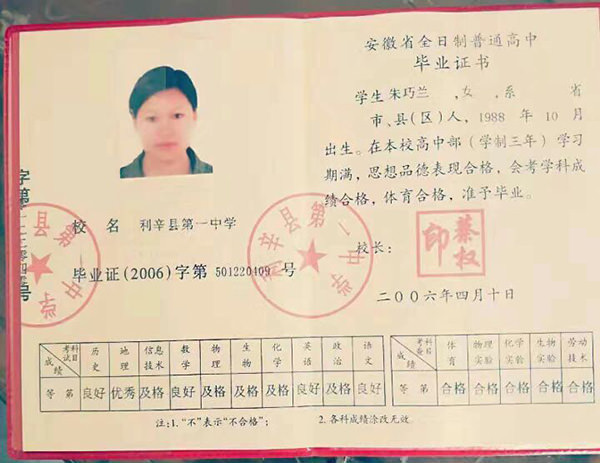 安徽省全日制普通高中
毕业证书
学生 朱巧兰 ,女 ,系 省
市、县(区)人, 1988 年 10 月
出生。在本校高中部(学制三年)学习
期满,思想品德表现合格,会考学科成
绩合格,体育合格,准予毕业。
校长:
蔡权印
二〇〇六年四月十日
校 名 利辛县第一中学
毕业证(2006)字第 501220409 号
利辛县第一中学
考试科目 历史 地理 信息技术 数学 物理 生物 化学 英语 政治 语文
成绩等第 良好 优秀 及格 良好 及格 及格 及格 良好 良好 良好
考查科目 体育 物理实验 化学实验 生物实验 劳动技术
成绩等第 合格 合格 合格 合格 合格
注:1.“不”表示“不合格”; 2.各科成绩涂改无效.